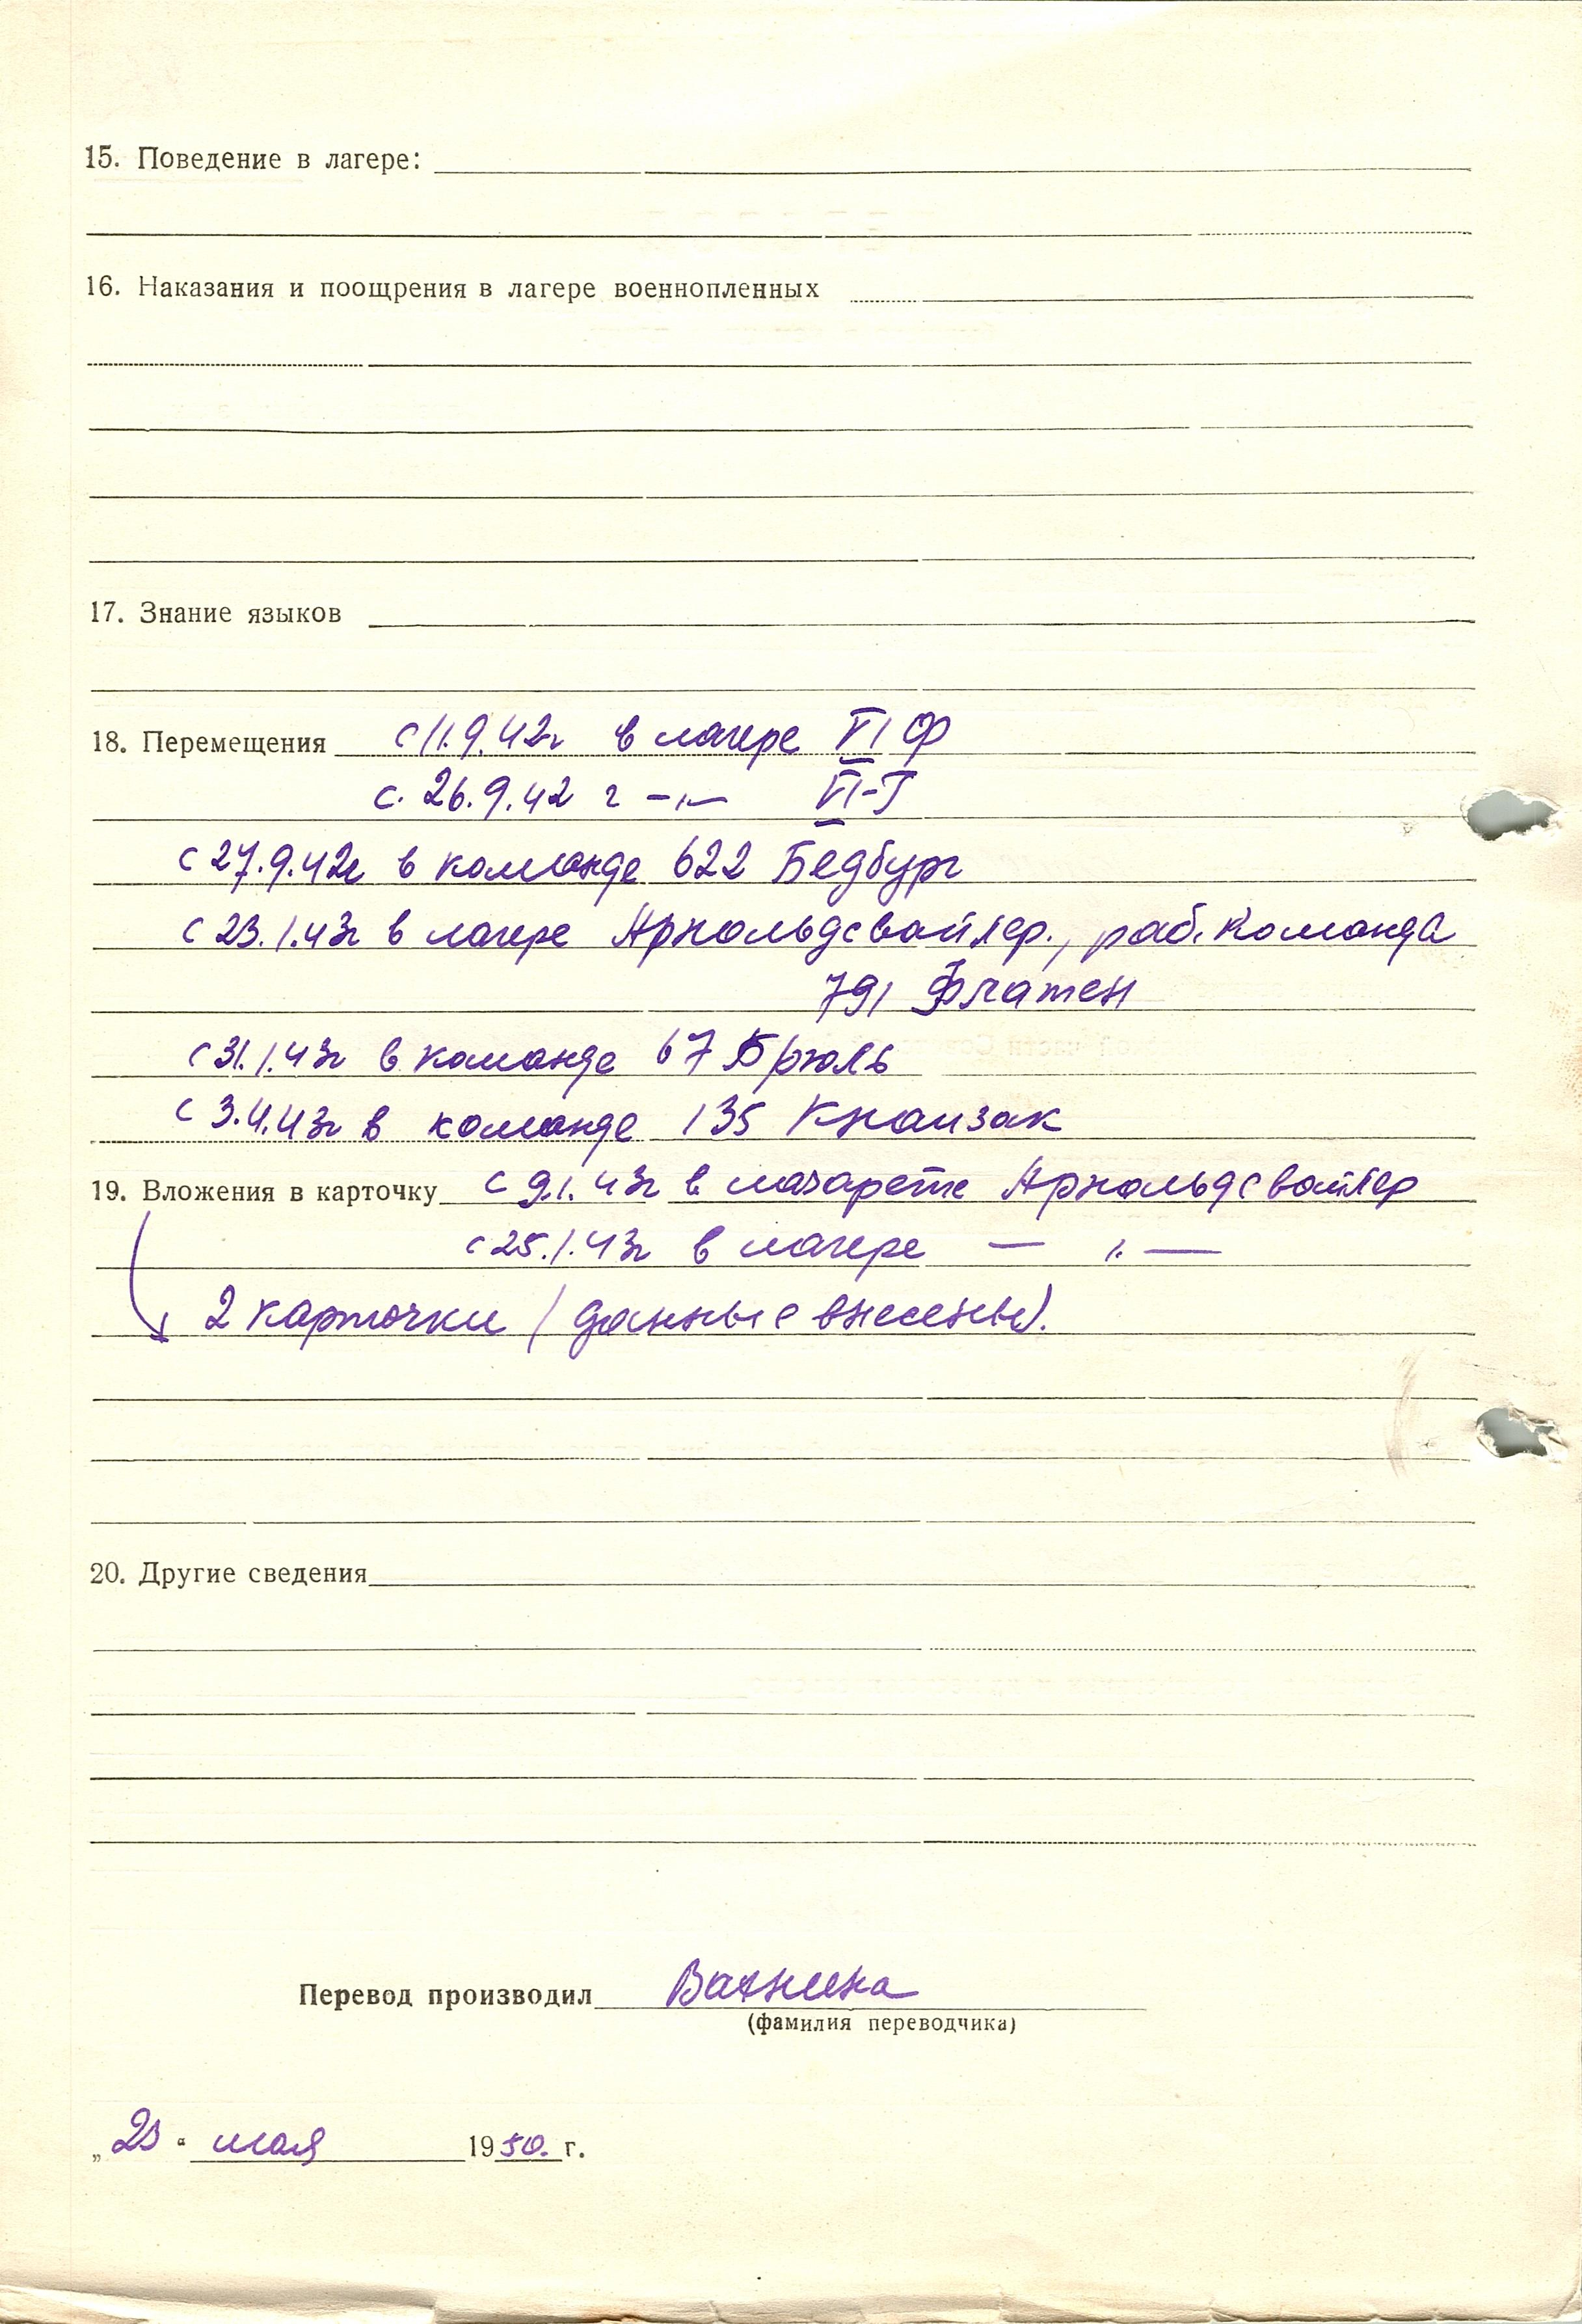 15. Поведение в лагере:
16. Наказания и поощрения в лагере военнопленных
17. Знание языков
18. Перемещения с 11.9.42г в лагере VI Ф
с. 26.9.42 г —"— VI-Г
с 27.9.42г в команде 622 Бедбург
с 23.1.43г в лагере Арнольдсвайлер., раб. команда
791 Флатен
с 31.1.43г в команде 67 Брюль
с 3.4.43г в команде 135 Кнапзак
19. Вложения в карточку с 9.1.43г в лазарете Арнольдсвайлер
с 25.1.43г в лагере —"—
2 карточки (данные внесены).
20. Другие сведения
Перевод производил
(фамилия переводчика)
„23“ мая 1950. г.